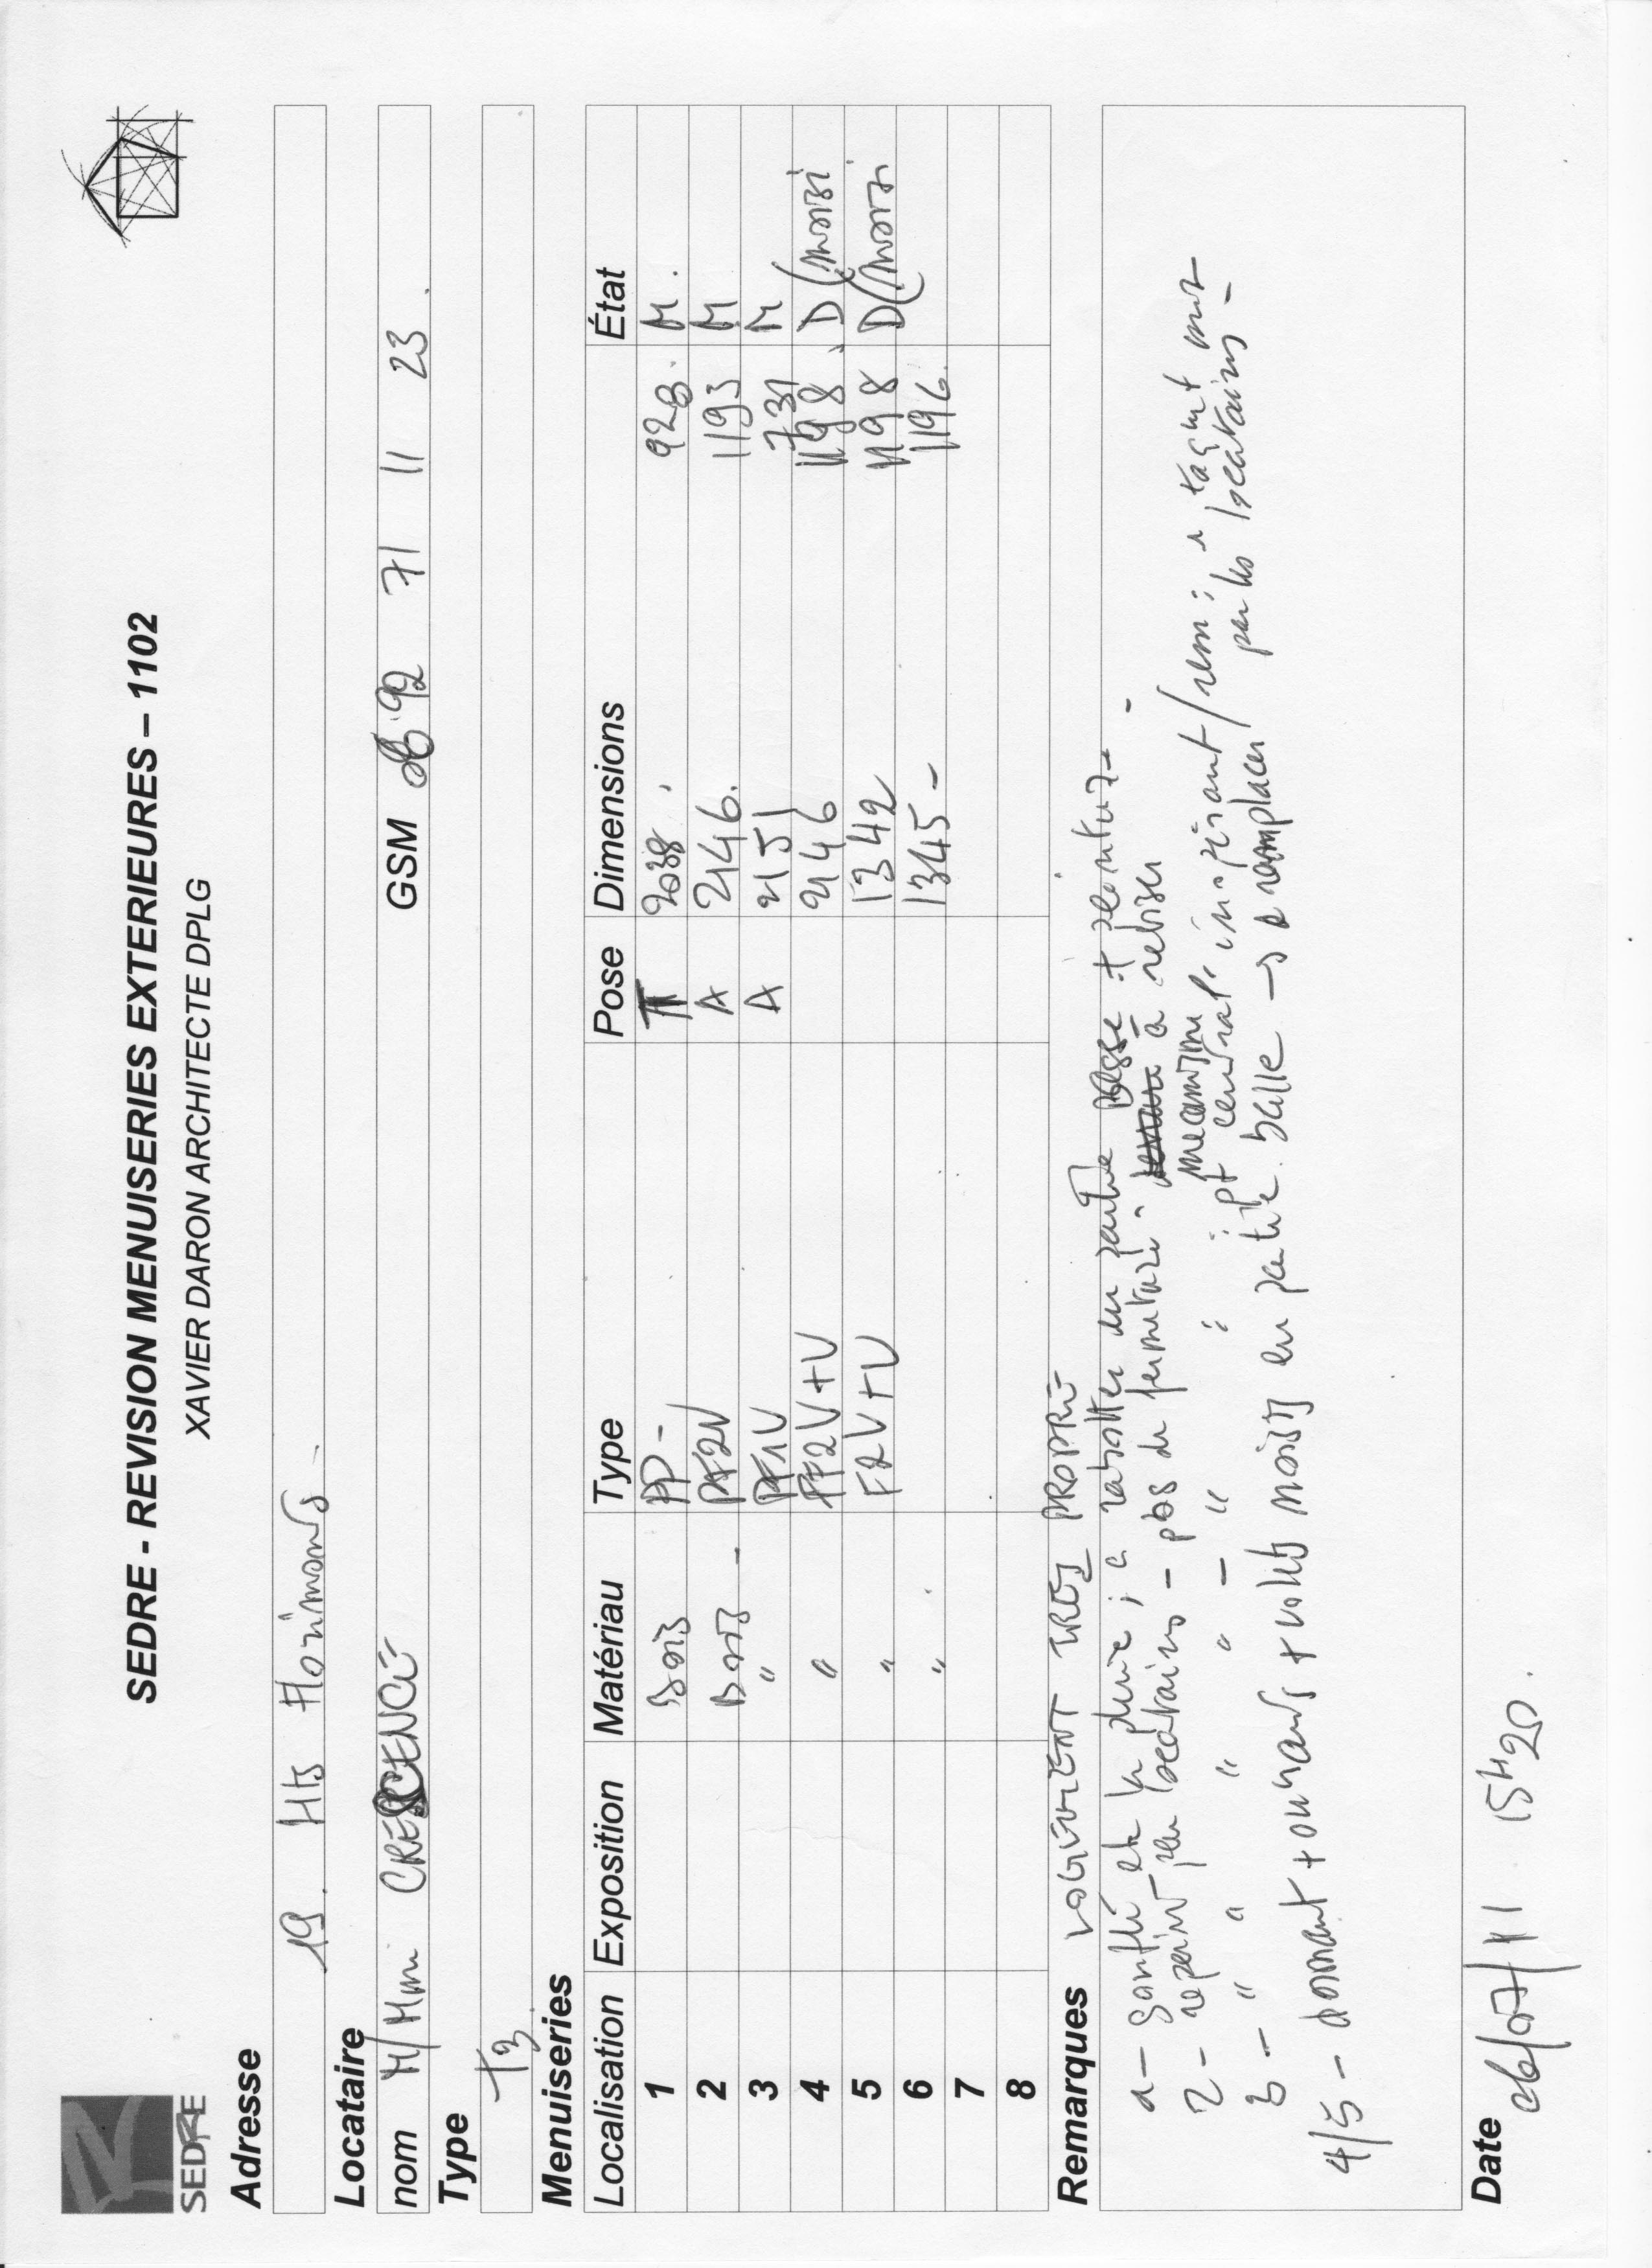 SEDRE
SEDRE - REVISION MENUISERIES EXTERIEURES – 1102
XAVIER DARON ARCHITECTE DPLG
Adresse
19. Hts Florimonds
Locataire
nom M/Mme CRESCENCE GSM 06 92 71 11 23
Type
T3
Menuiseries
Localisation Exposition Matériau Type Pose Dimensions État
1 Bois PP - 2038 928. M.
2 Bois - PF2V A 2146. 1193 M
3 " PF1V A 2151 731 M
4 " PF2V+V 2146 1198 D (moisi
5 " F2V+V 1342 1198 D (moisi
6 " 1345 - 1196.
7
8
Remarques LOGEMENT TRES PROPRE
1 - gonflé et la pluie ; à rabotter en partie basse + peinture -
2 - repeint par locataires - pbs de fermeture - à reviser
mecanisme
3 - " " " " - " " pt central inopérant /
par les locataires -
4/5 - dormant + ouvrants + volets moisis en partie basse → à remplacer
Date 06/07/11 15H20.